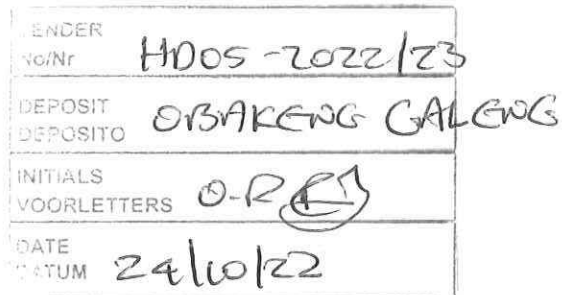 ENDER
No/Nr HD05-2022/23
DEPOSIT
DEPOSITO OBAKENG GALENG
INITIALS
VOORLETTERS O.R
DATE
ATUM 24/10/22